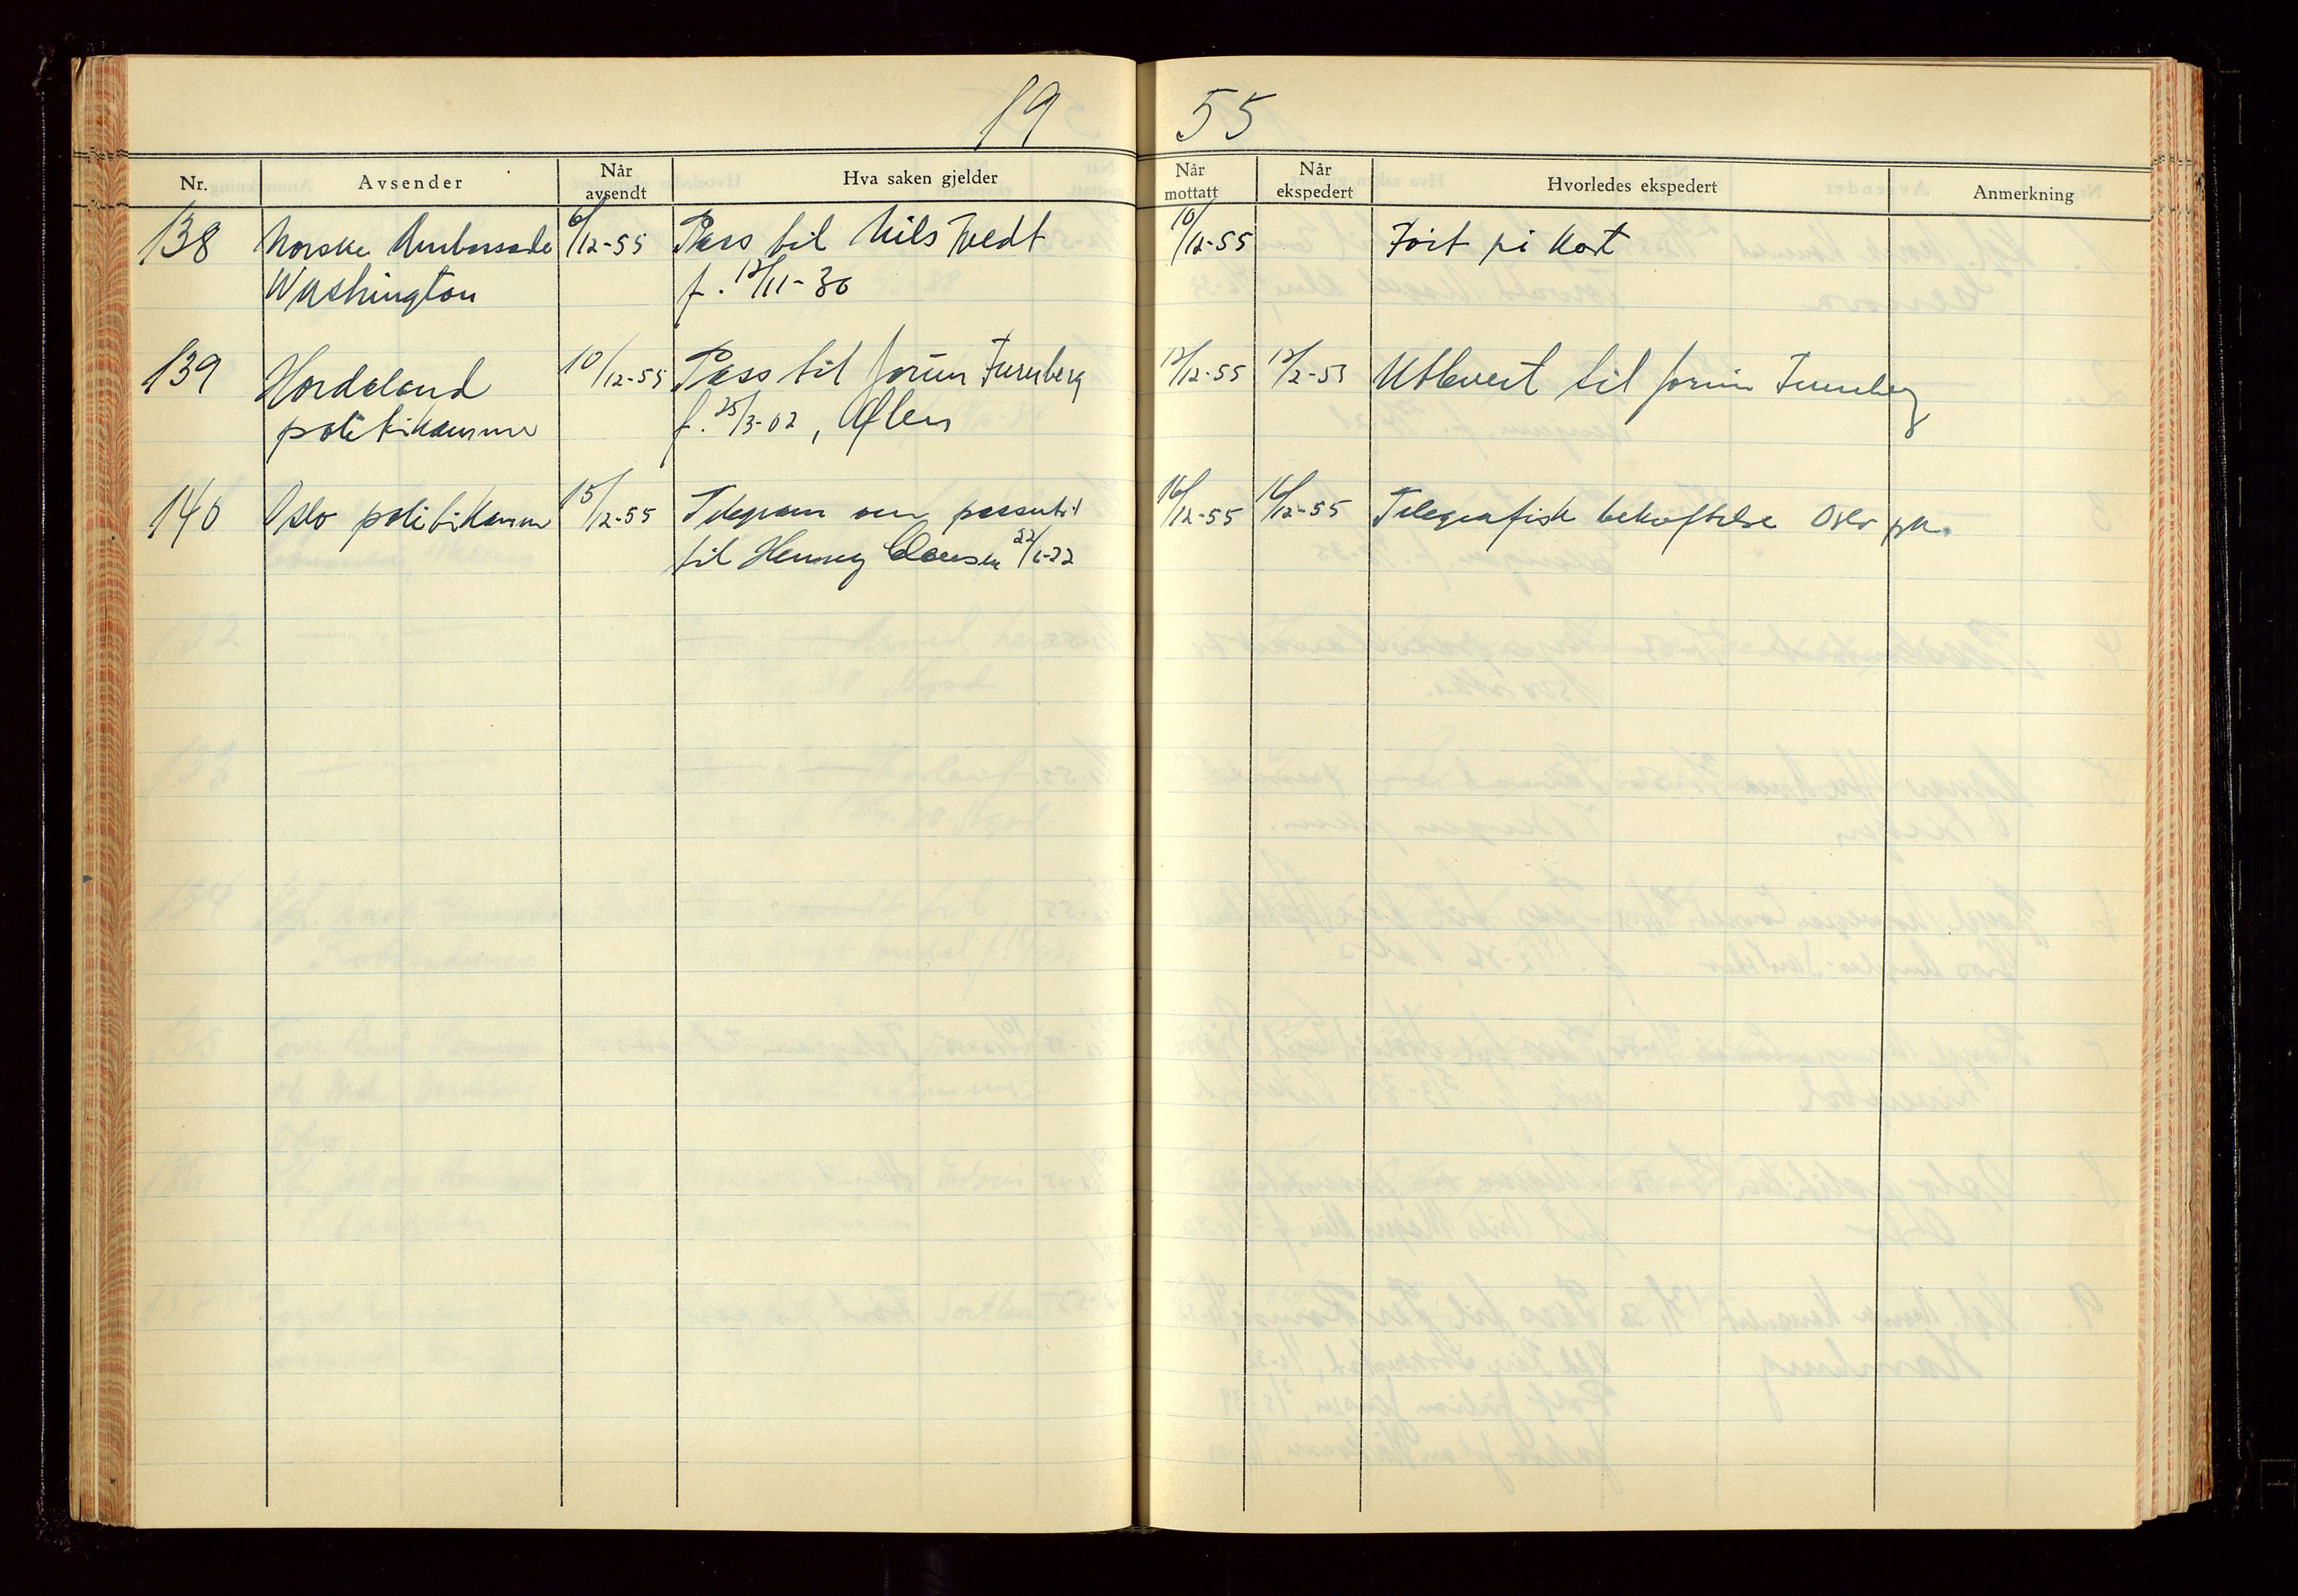 19 55
Nr. Avsender Når avsendt Hva saken gjelder Når mottatt Når ekspedert Hvorledes ekspedert Anmerkning
138 Norske Ambassade 6/12-55 Pass til Nils Tvedt 10/12-55 Ført på kort
Washington f. 12/11-30
139 Hordaland 10/12-55 Pass til Jorunn Furuberg 12/12-55 12/12-55 Utlevert til Jorunn Furuberg
politikammer f. 25/3-02, Ølen
140 Oslo politikammer 15/12-55 Telegram om passutst 16/12-55 16/12-55 Telegrafisk bekreftelse Oslo pk.
til Henny Clausen 22/6-22